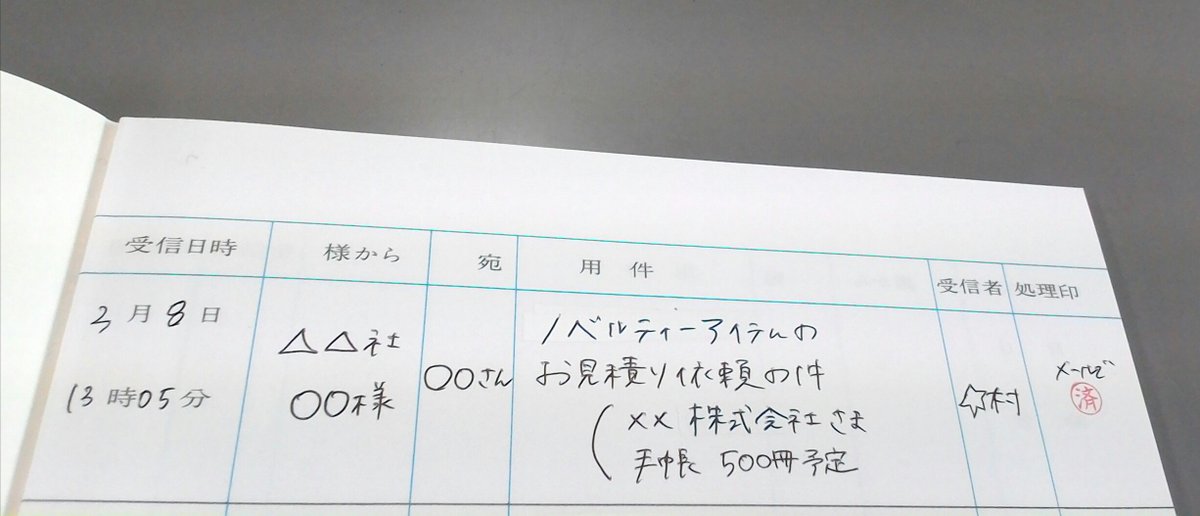 受信日時
様から
宛
用件
受信者
処理印
3月8日
13時05分
△△社
〇〇様
〇〇さん
ノベルティーアイテムの
お見積り依頼の件
(×× 株式会社さま
手帳 500冊予定
☆村
メールで
済